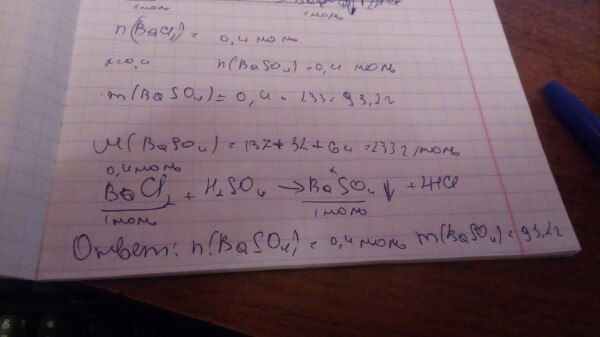 1моль 1моль
n(BaCl₂) = 0,4 моль
x=0,4 n(BaSO₄)=0,4 моль
m(BaSO₄) = 0,4 · 233 = 93,2г
M(BaSO₄) = 137+32+64 =233г/моль
0,4моль x
BaCl₂ + H₂SO₄ → BaSO₄ ↓ +2HCl
1моль 1моль
Ответ: n(BaSO₄) = 0,4 моль m(BaSO₄) = 93,2г